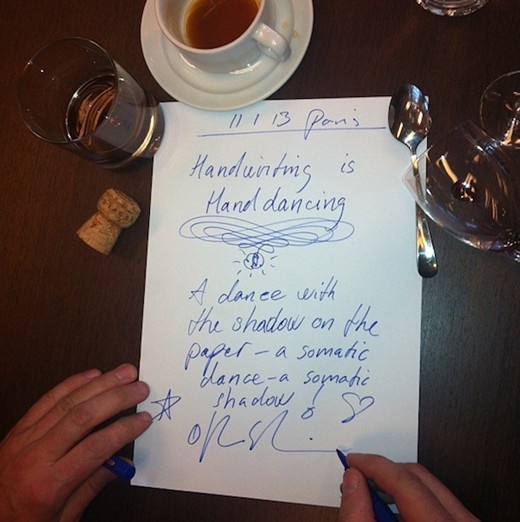 11 1 13 Paris
Handwriting is
Hand dancing
A dance with
the shadow on the
paper – a somatic
dance – a somatic
shadow